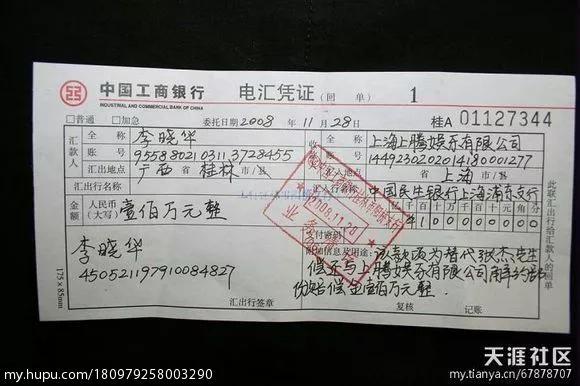 中国工商银行 电汇凭证（回 单） 1
INDUSTRIAL AND COMMERCIAL BANK OF CHINA
□普通 □加急 委托日期2008 年 11 月 28 日 桂A 01127344
汇款人 全 称 李晓华 全 称 上海上腾娱乐有限公司
账 号 9558802103113728455 账 号 1449230202014180001277
汇出地点 广西省 桂林 市/县 汇入地点 上海 市/县
汇出行名称 汇入行名称 中国民生银行上海浦东支行
金额 人民币（大写） 壹佰万元整
2008.11.28
业务
支付密码
李晓华
附加信息及用途：该款项为替代张杰先生
450521197910084827
偿还与上腾娱乐有限公司解约部
份赔偿金壹佰万元整.
汇出行签章 复核 记账
此联汇出行给汇款人的回单
175×85mm
天涯社区
my.hupu.com/180979258003290
my.tianya.cn/67878707